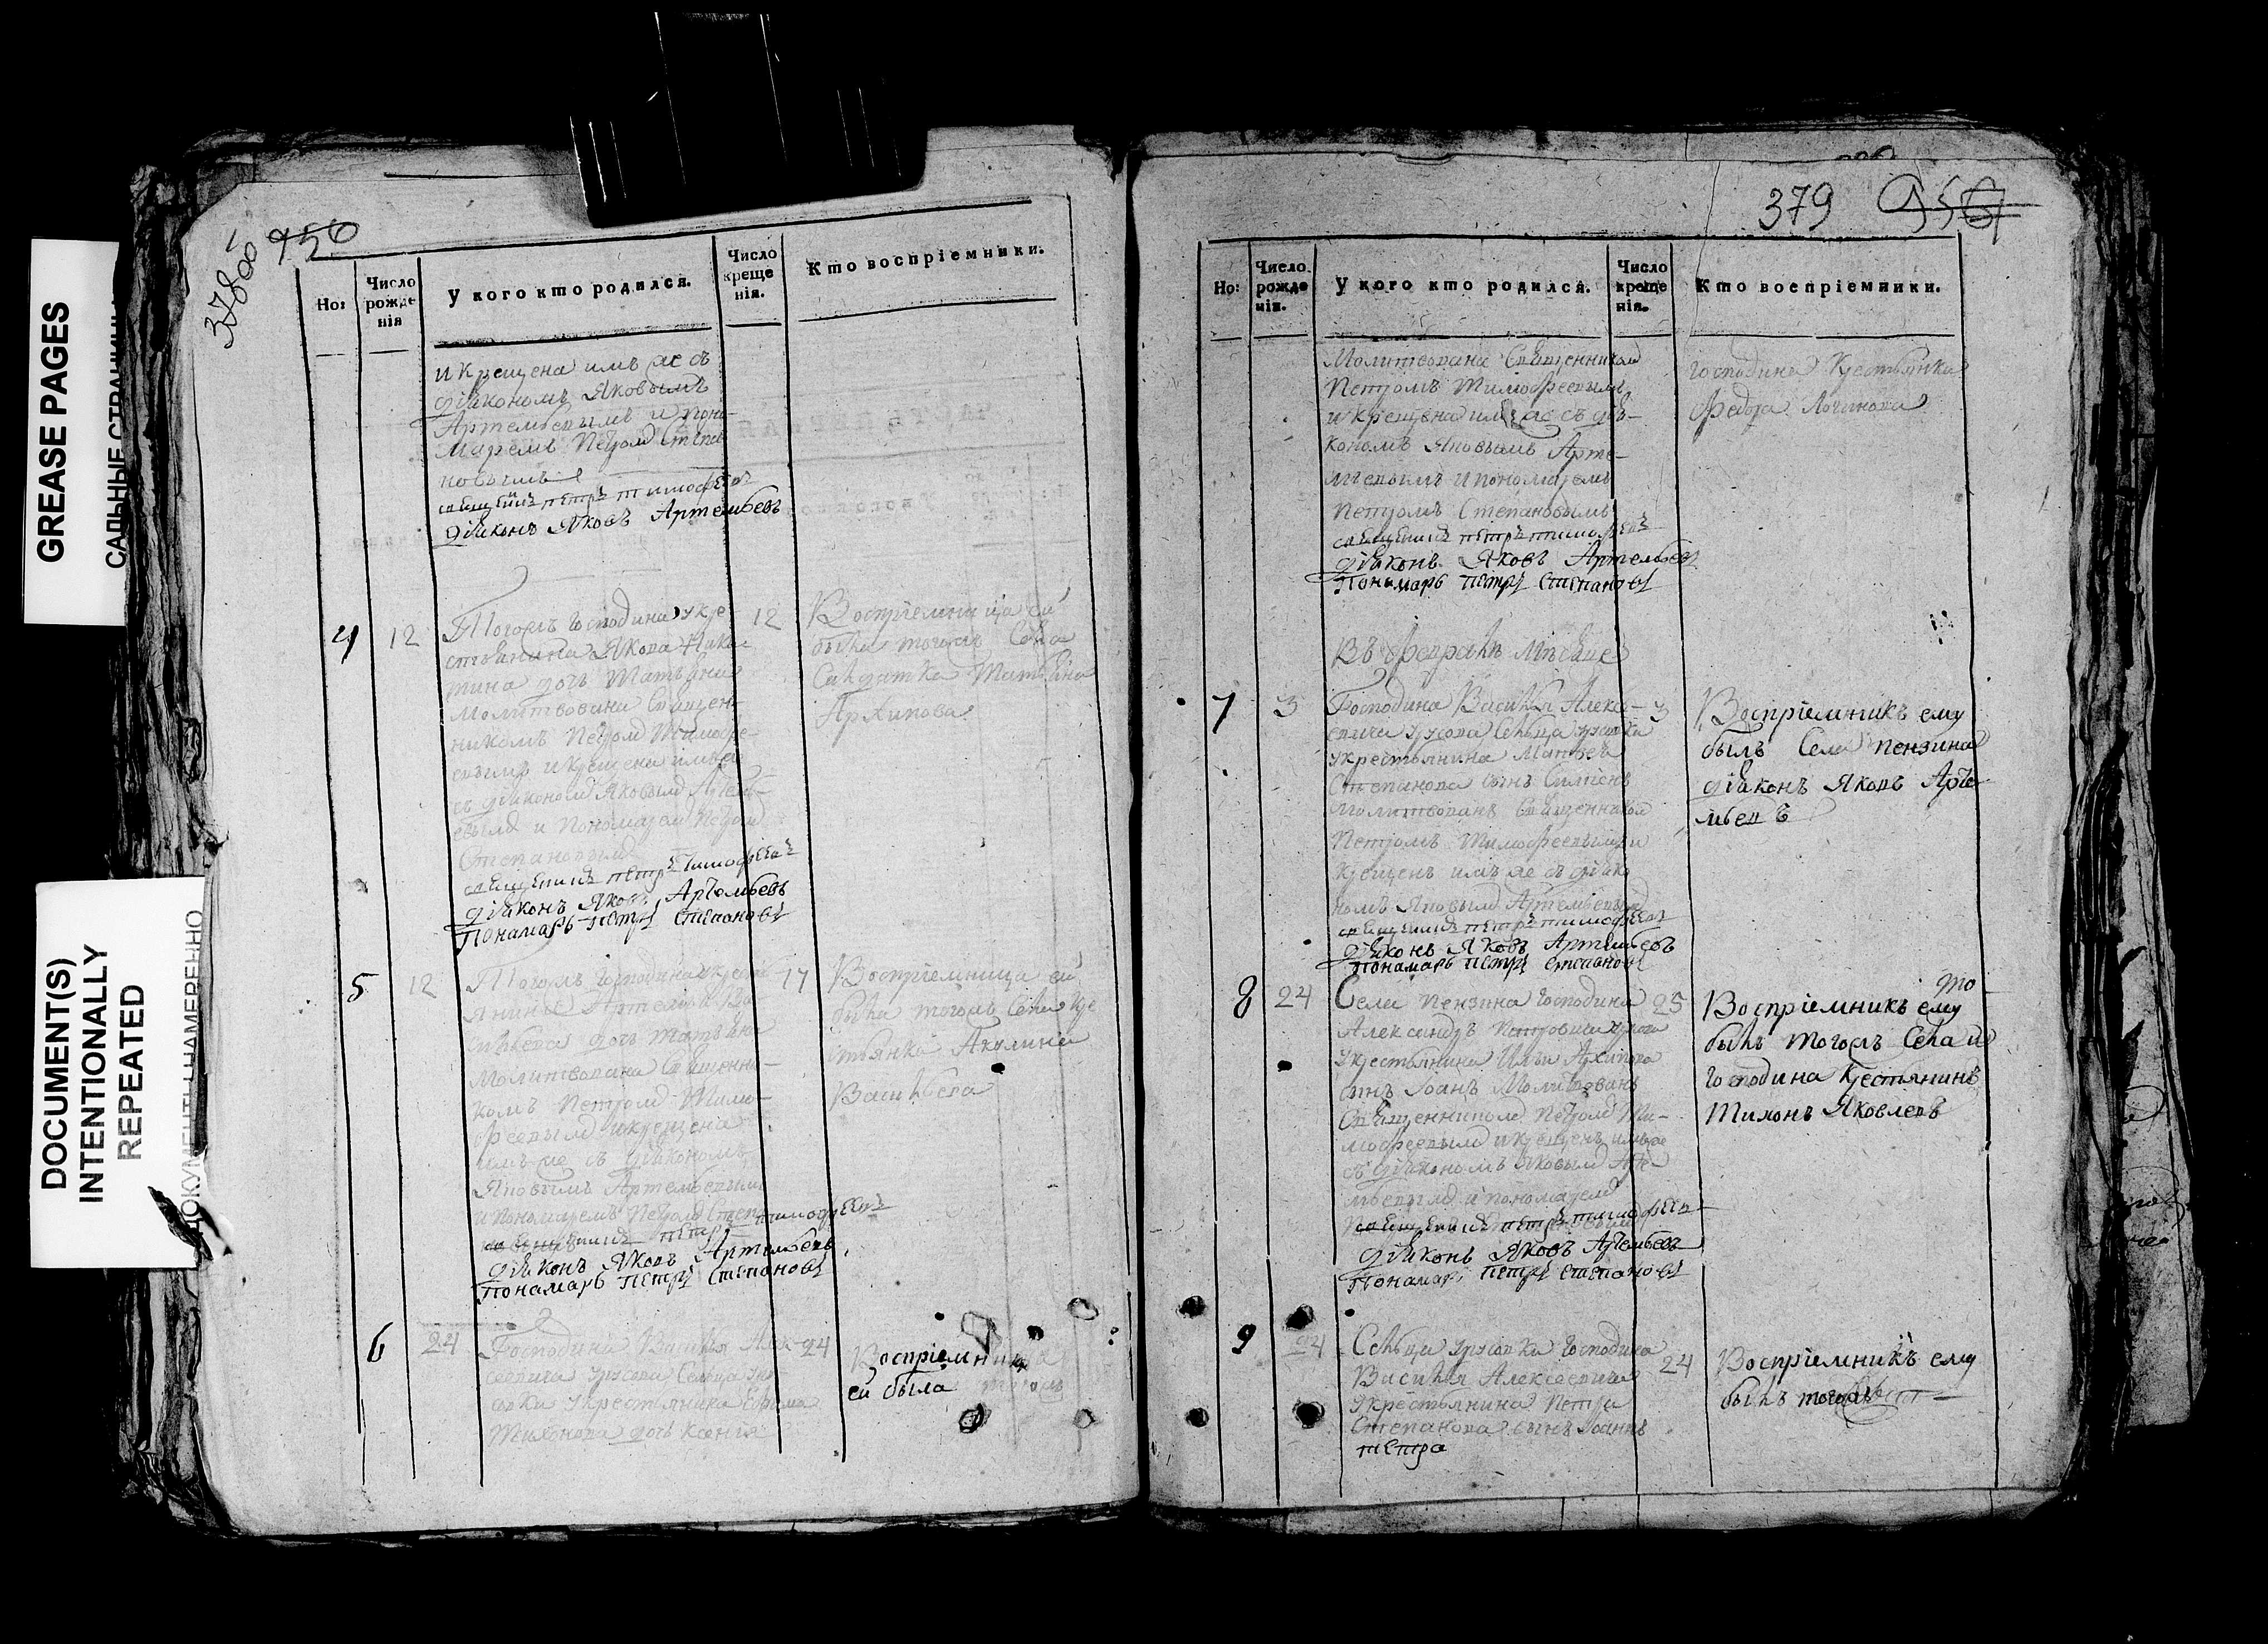 GREASE PAGES
САЛЬНЫЕ СТРАНИЦЫ
DOCUMENT(S)
INTENTIONALLY
REPEATED
ДОКУМЕНТЫ НАМЕРЕННО
378об
956
Но:
Число рожденія
У кого кто родился.
Число крещенія.
Кто воспріемники.
и крещена имъ же съ
діякономъ Яковымъ
Артемьевымъ и поно-
маремъ Петромъ Степа
новымъ
священникъ петръ тимофѣевъ
діяконъ Яковъ Артемьевъ
4
12
Тогожъ Господина у кре
стьянина Якова Ники-
тина дочь Татьяна
Молитвована Священ-
никомъ Петромъ Тимофе-
евымъ и крещена имъ же
съ діякономъ Яковымъ Артемь-
евымъ и пономаремъ Петромъ
Степановымъ
священникъ петръ Тимофѣевъ
діяконъ Яковъ Артемьевъ
Понамарь петръ степановъ
12
Воспріемница ей
была тогожъ Села
Салдатка Татьяна
Архипова
5
12
Тогожъ Господина у крестья
янина Артемья Ва-
сильева дочь татьяна
Молитвована Священни-
комъ Петромъ Тимо-
феевымъ и крещена
имъ же съ діякономъ
Яковымъ Артемьевымъ
и пономаремъ Петромъ Степа
священникъ петръ тимофѣевъ
діяконъ Яковъ Артемьевъ
Понамарь петръ степановъ
17
Воспріемница ей
была тогожъ Села кре
стьянка Акулина
Васильева
6
24
Господина Василья Алек
сеевича Урусова Сельца Уру
совки у крестьянина Ефима
Тихонова дочь Ксенія
24
Воспріемница
ей была тогожъ
379
956
Но:
Число рожденія.
У кого кто родился.
Число крещенія.
Кто воспріемники.
Молитвована Священникомъ
Петромъ Тимофеевымъ
и крещена имъ же съ дія-
кономъ Яковымъ Арте-
мьевымъ и пономаремъ
Петромъ Степановымъ
священникъ петръ тимофѣевъ
діяконъ Яковъ Артемьевъ
Пономарь петръ степановъ
господина Крестьянка
Федора Логинова
Въ феврале Месяце
7
3
Господина Василья Алексе-
евича Урусова Сельца Урусовки
у крестьянина Матвея
Степанова сынъ Симеонъ
молитвованъ Священникомъ
Петромъ Тимофеевымъ и
крещенъ имъ же съ діяко
номъ Яковымъ Артемьевымъ
священникъ петръ тимофѣевъ
діяконъ Яковъ Артемьевъ
Понамарь петръ степановъ
3
Воспріемникъ ему
былъ Села пензина
діяконъ Яковъ Арте-
мьевъ
8
24
Села Пензина Господина
Александръ Петровича
у крестьянина Ильи Архипова
сынъ Іоанъ Молитвованъ
Священникомъ Петромъ Ти-
мофеевымъ и крещенъ имъ же
съ діякономъ Яковымъ Арте
мьевымъ и пономаремъ
священникъ петръ тимофѣевъ
діяконъ Яковъ Артемьевъ
Понамарь петръ степановъ
25
Воспріемникъ ему
былъ тогожъ Села и то-
Господина Крестянинъ
Тихонъ Яковлевъ
9
24
Сельца Урусовки Господина
Василья Алексеевича
у крестьянина Петра
Степанова сынъ Іоаннъ
петра
24
Воспріемникъ ему
былъ тогожъ